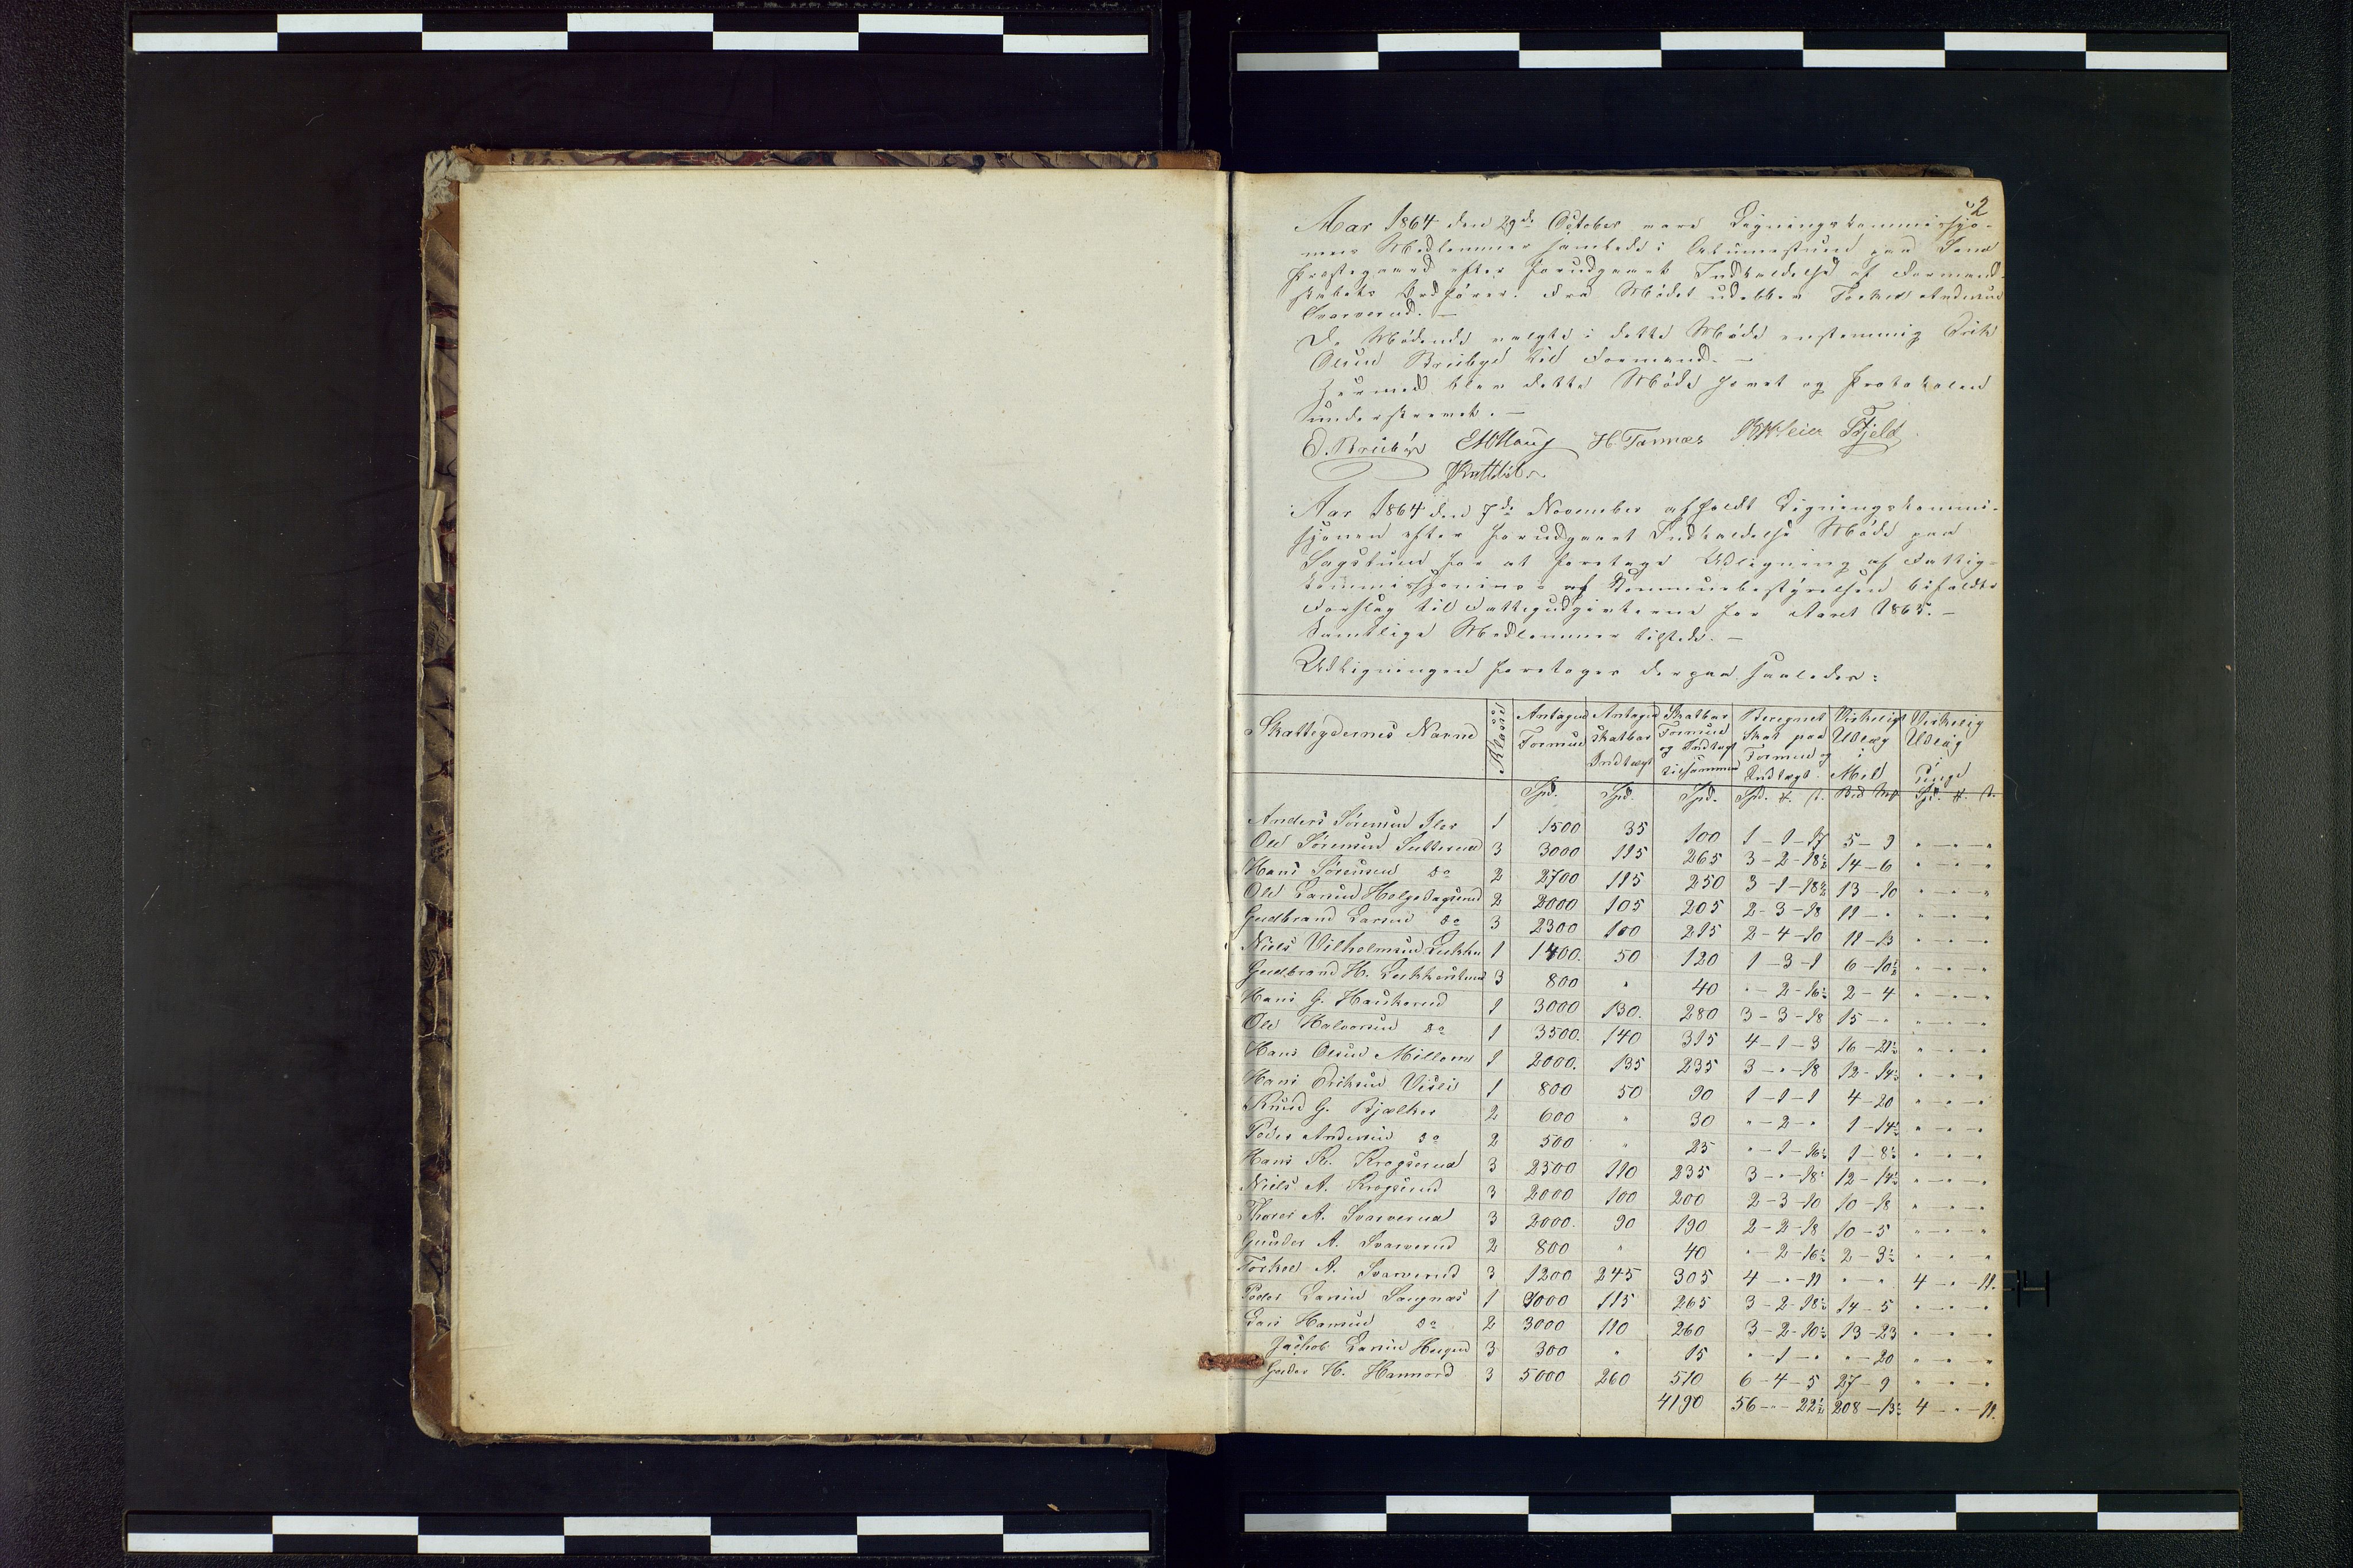 2
Aar 1864 den 29de October vare Ligningskommissjo-
nens Medlemmer samlede i Almuestuen paa
Præstegaard efter forudgaaet Indkaldelse af Formand-
skabets Ordfører. Fra Mødet udeblev Torkel Andersen
Svarverud. —
De Mødende valgte i dette Møde enstemmig Erik
Olsen Brubye til Formand. —
Hermed blev dette Møde hævet og Protokolen
underskrevet. —
E. Brubye H. Tannæs Fjeld
Aar 1864 den 7de November afholdt Ligningskommi-
sjonen efter forudgaaet Indkaldelse Møde paa
Sagstuen for at foretage Udligning af Fattig-
kommissjonens af Kommunebestyrelsen bifaldte
Forslag til Fattigudgivterne for Aaret 1865. —
Samtlige Medlemmer tilstede. —
Udligningen foretoges derpaa saaledes:
Skatteydernes Navne Klasse Antagen Formue Antagen skatbar Indtægt Skatbar Formue og Indtægt tilsammen Beregnet Skat paa Formue og Indtægt Virkelig Udlæg i Mel Virkelig Udlæg i Penge
Spd. Spd. Spd. Spd. ¤. ß. Spd. ¤. ß.
Anders Sørensen 1 1500 35 100 1-1-17 5-9 " - " - "
Ole Sørensen 3 3000 115 265 3-2-18½ 14-6 " - " - "
Hans Sørensen do 2 2700 115 250 3-1-18½ 13-10 " - " - "
Ole Larsen Helgedagsrud 2 2000 105 205 2-3-18 11-" " - " - "
Gudbrand Larsen do 3 2300 100 215 2-4-10 11-13 " - " - "
Niels Vilhelmsen 1 1400. 50 120 1-3-1 6-10½ " - " - "
Gudbrand H. 3 800 " 40 "-2-16½ 2-4 " - " - "
Hans G. Haukerud 1 3000 130. 280 3-3-18 15-" " - " - "
Ole Halvorsen do 1 3500. 140 315 4-1-3 16-21½ " - " - "
Hans Olsen 1 2000. 135 235 3-"-18 12-14½ " - " - "
Hans Eriksen 1 800 50 90 1-1-1 4-20 " - " - "
Knud G. Bjælker 2 600 " 30 "-2-" 1-14½ " - " - "
Peder Andersen do 2 500 " 25 "-1-16½ 1-8½ " - " - "
Hans K. Krogsrud 3 2500 110 235 3-"-18½ 12-14½ " - " - "
Niels A. Krogsrud 3 2000 100 200 2-3-10 10-18 " - " - "
A. Svarverud 3 2000. 90 190 2-2-18 10-5 " - " - "
Gunder A. Svarverud 2 800 " 40 "-2-16½ 2-3½ " - " - "
Torkel A. Svarverud 3 1200 245 305 4-"-11 "-" 4-"-11.
Peder Larsen Saugnæs 1 3000 115 265 3-2-18½ 14-5 " - " - "
Lars Hansen do 2 3000 110 260 3-2-10½ 13-23 " - " - "
Jachob Larsen 3 300 " 15 "-1-" "-20 " - " - "
Gulder H. Hannord 3 5000 260 510 6-4-5 27-9 " - " - "
4190 56-"-22½ 208-13½ 4-"-11.